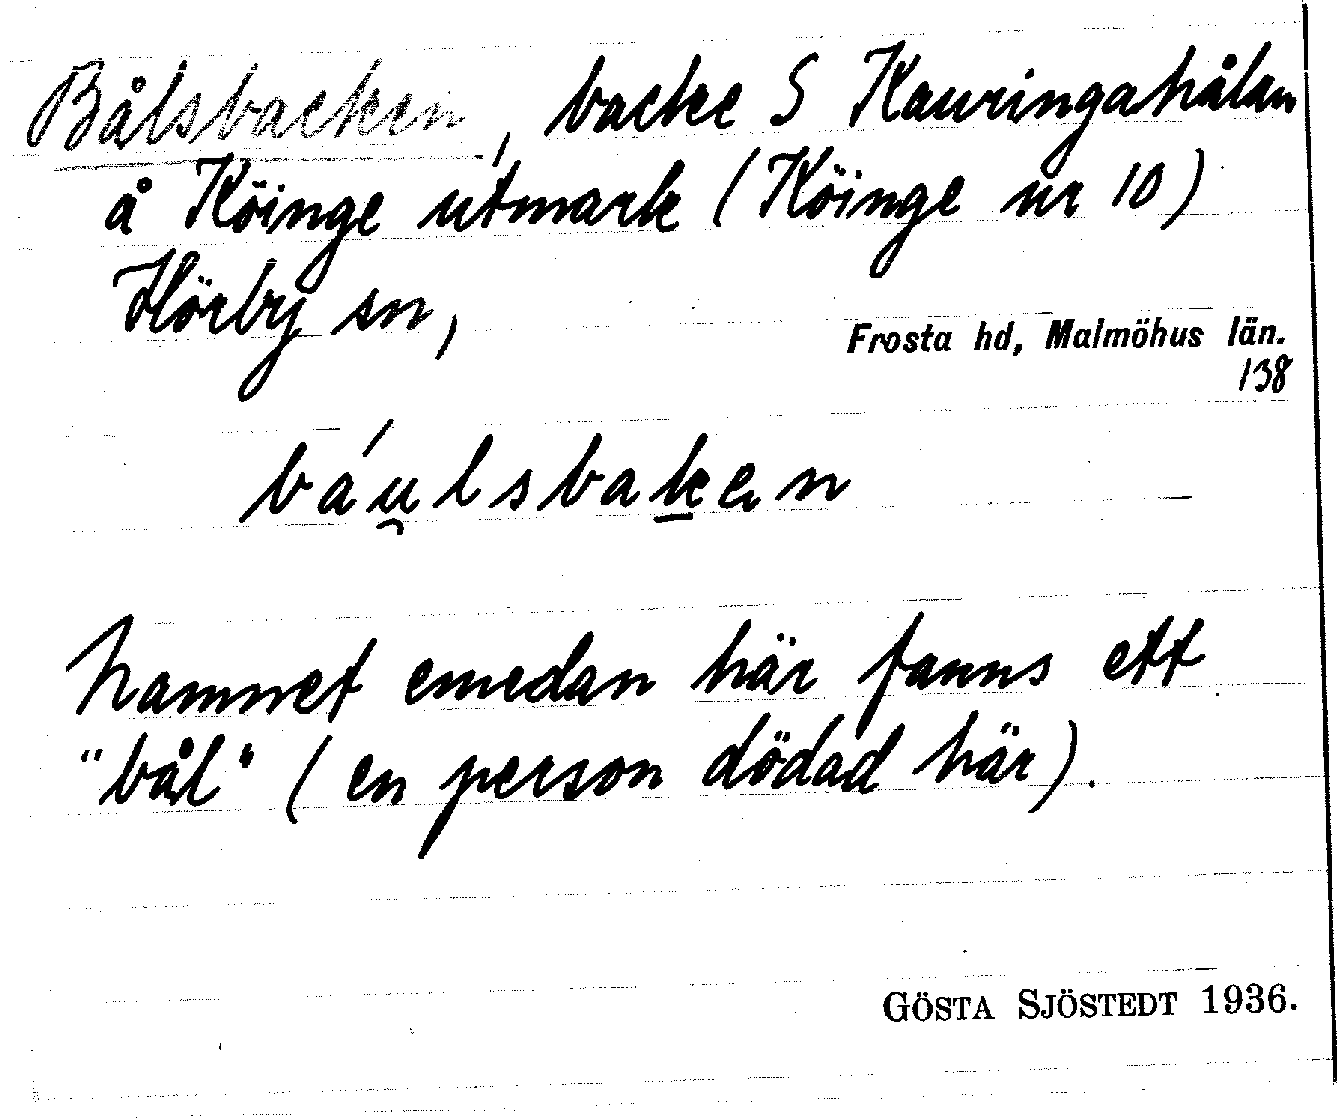 Bålsbacken, backe S Kauringahålan
å Köinge utmark (Köinge nr 10)
Hörby sn,
Frosta hd, Malmöhus län.
138
báu̯lsbaḵen
Namnet emedan här fanns ett
"bål" (en person dödad här).
GÖSTA SJÖSTEDT 1936.